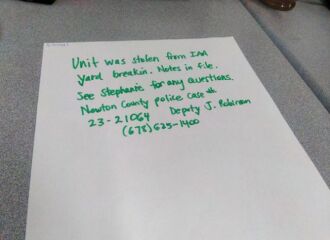 Unit was stolen from IAA
yard breakin. Notes in file.
See Stephanie for any questions.
Newton County police case #
23-21064 Deputy J. Robinson
(678) 625-1400